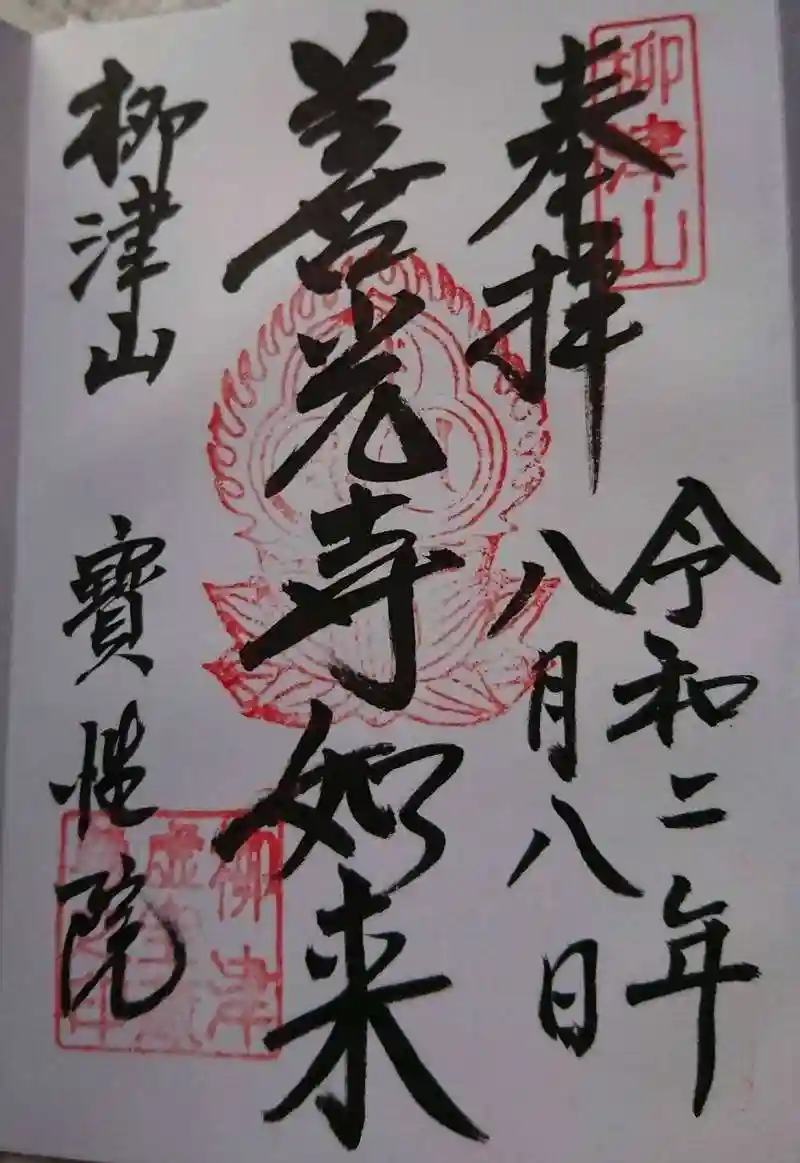 柳津山
奉拝
令和二年
八月八日
善光寺如来
柳津山
寳性院
柳津
虚空蔵